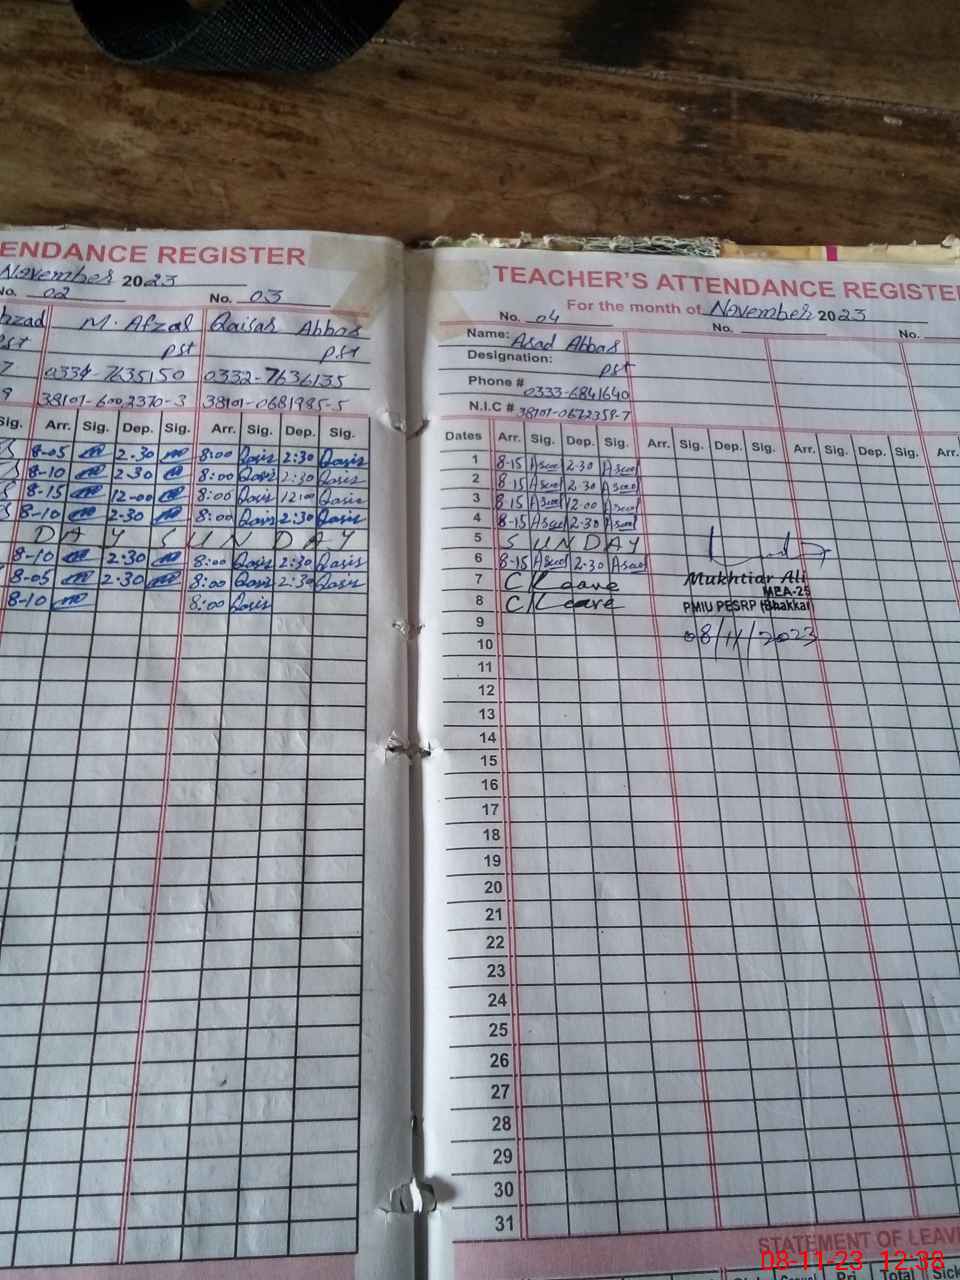 ENDANCE REGISTER
November 2023
No. 02 No. 03
hzad M. Afzal Qaisar Abbas
Pst pst pst
7 0334-7635150 0332-7636135
9 38101-6002370-3 38101-0681985-5
Sig. Arr. Sig. Dep. Sig. Arr. Sig. Dep. Sig.
8-05 2-30 8:00 Qasir 2:30 Qasir
8-10 2-30 8:00 Qasir 2:30 Qasir
8-15 12-00 8:00 Qasir 12:00 Qasir
8-10 2-30 8:00 Qasir 2:30 Qasir
D A Y S U N D A Y
8-10 2:30 8:00 Qasir 2:30 Qasir
8-05 2-30 8:00 Qasir 2:30 Qasir
8-10 8:00 Qasir
TEACHER'S ATTENDANCE REGISTE
For the month of November 2023
No. 04 No. No.
Name: Asad Abbas
Designation: pst
Phone # 0333-6841640
N.I.C # 38101-0672359-7
Dates Arr. Sig. Dep. Sig. Arr. Sig. Dep. Sig. Arr. Sig. Dep. Sig. Arr.
1 8-15 Asad 2-30 Asad
2 8-15 Asad 2-30 Asad
3 8-15 Asad 12-00 Asad
4 8-15 Asad 2-30 Asad
5 S U N D A Y
6 8-15 Asad 2-30 Asad
7 C/Leave
8 C/Leave
Mukhtiar Ali
MEA-25
PMIU PESRP (Bhakkar
08/11/2023
9
10
11
12
13
14
15
16
17
18
19
20
21
22
23
24
25
26
27
28
29
30
31
STATEMENT OF LEAV
Total Sick
08-11-23 12:38